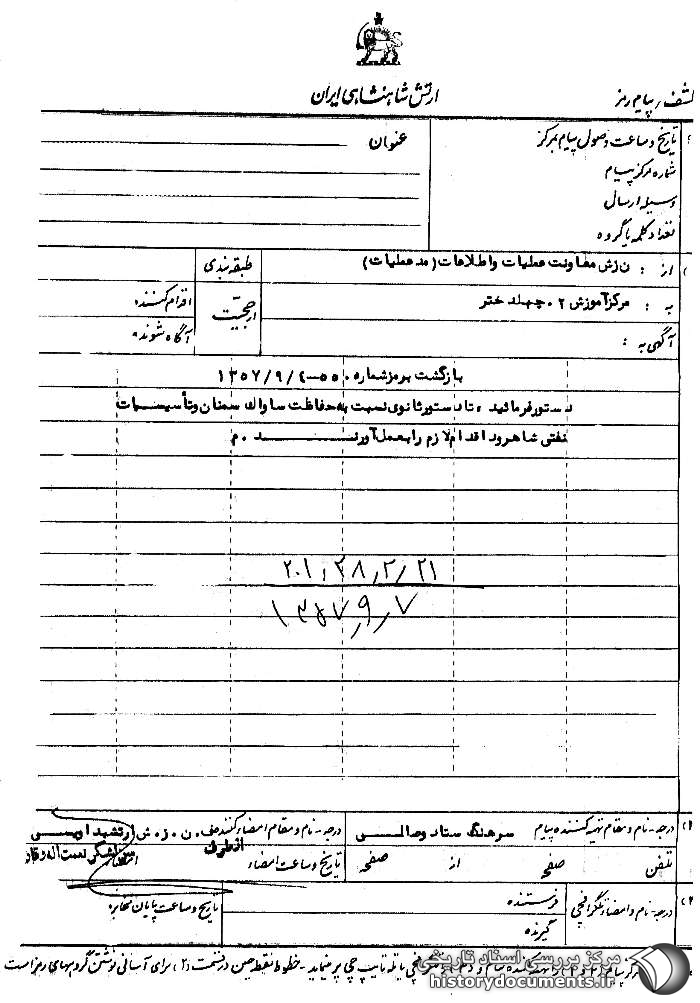 ارتش شاهنشاهی ایران
کشف، پیام رمز
تاریخ وساعت وصول پیام بمرکز
عنوان
شماره مرکز پیام
وسیله ارسال
تعداد کلمه یا گروه
از : نزش معاونت عملیات واطلاعات (مد عملیات)
طبقه بندی
به : مرکزآموزش ۰۲ چهلد ختر
ارجحیت
اقدام کننده:
آگهی به :
آگاه شونده
بازگشت برمزشماره ۵۵۰-۱۳۵۷/۹/۴
دستورفرمائید تادستورثانوی نسبت به حفاظت ساواك سمنان وتأسیسات
نفتی شاهرود اقدام لازم رابعمل آورند . م
۲۰۱,۳۸,۲/۲۱
۱۳۵۷,۹,۷
درجه-نام و مقام تهیه کننده پیام
سرهنگ ستاد وصالی
درجه-نام ومقام امضاء کننده
ف. ن. ز. ش ارتشبد اویسی
از طرف
تلفن
صفحه
از
صفحه
تاریخ وساعت امضاء
درجه-نام وامضاء تلگرافچی
فرستنده
گیرنده
تاریخ وساعت پایان مخابره
پر نماید-خطوط نقطه چین درقسمت (۲) برای آسانی نوشتن گروههای رمزاست
مرکز بررسی اسناد تاریخی
historydocuments.ir